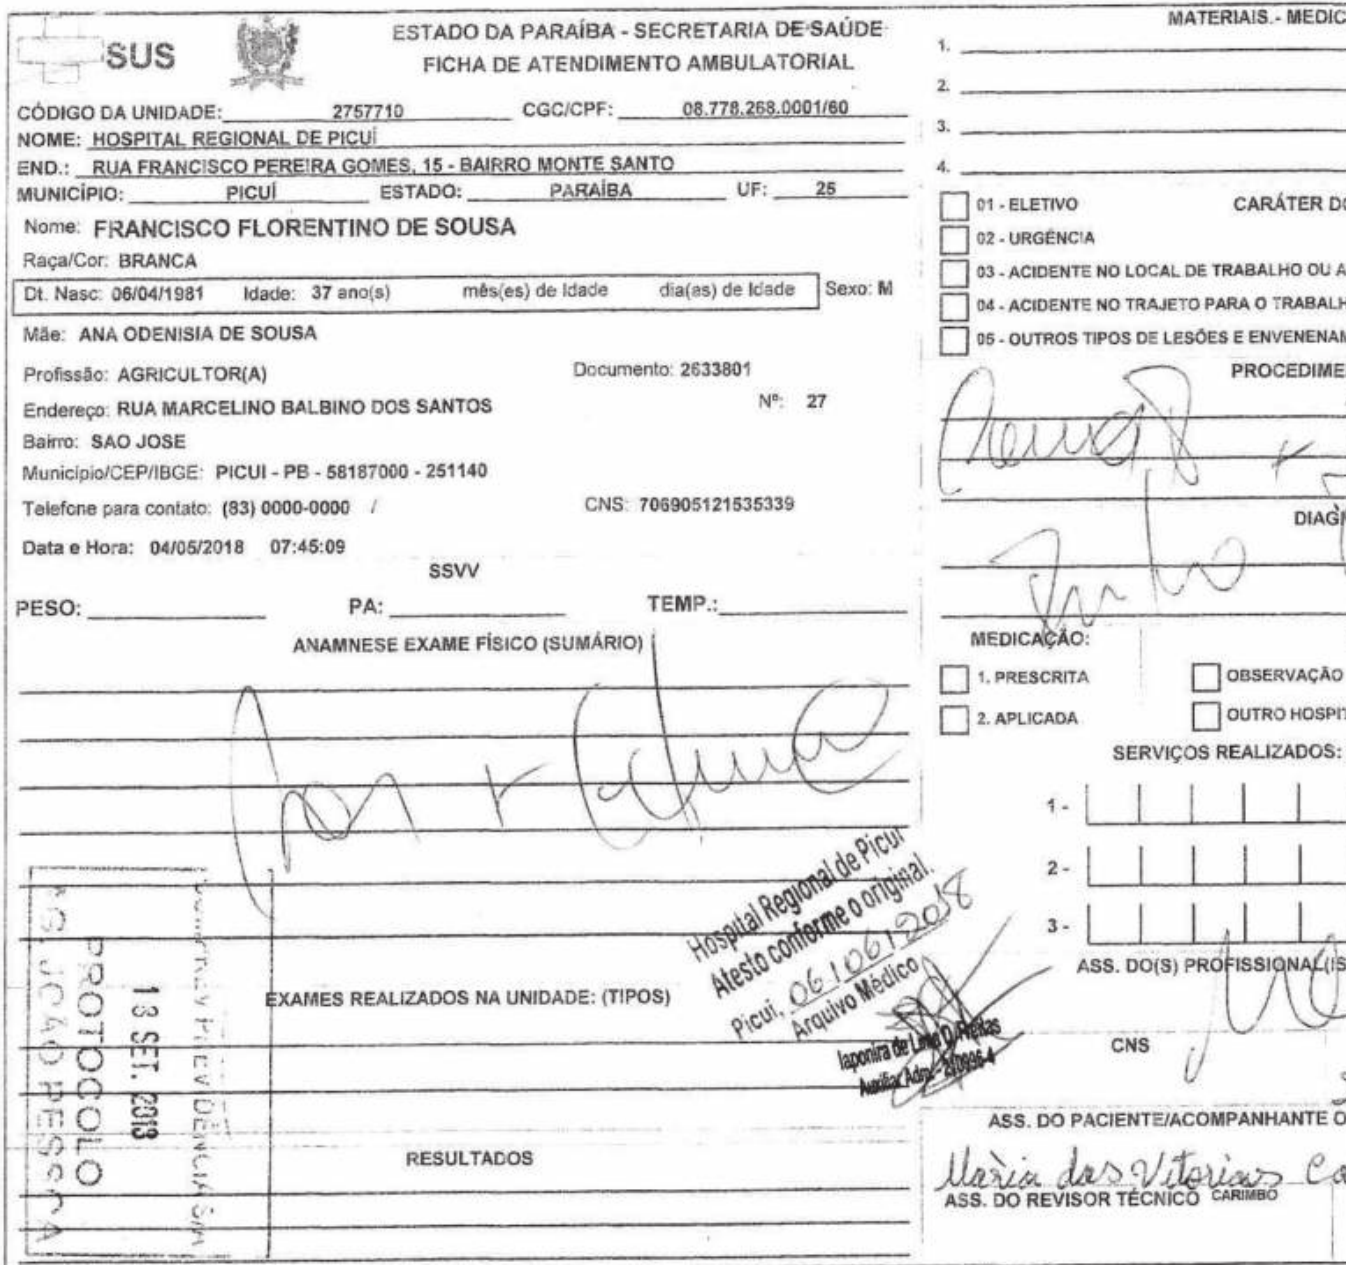 SUS
ESTADO DA PARAÍBA - SECRETARIA DE SAÚDE
FICHA DE ATENDIMENTO AMBULATORIAL
CÓDIGO DA UNIDADE: 2757710 CGC/CPF: 08.778.268.0001/60
NOME: HOSPITAL REGIONAL DE PICUÍ
END.: RUA FRANCISCO PEREIRA GOMES, 15 - BAIRRO MONTE SANTO
MUNICÍPIO: PICUÍ ESTADO: PARAÍBA UF: 25
Nome: FRANCISCO FLORENTINO DE SOUSA
Raça/Cor: BRANCA
Dt. Nasc: 06/04/1981 Idade: 37 ano(s) mês(es) de Idade dia(as) de Idade Sexo: M
Mãe: ANA ODENISIA DE SOUSA
Profissão: AGRICULTOR(A) Documento: 2633801
Endereço: RUA MARCELINO BALBINO DOS SANTOS Nº: 27
Bairro: SAO JOSE
Município/CEP/IBGE: PICUI - PB - 58187000 - 251140
Telefone para contato: (83) 0000-0000 / CNS: 706905121535339
Data e Hora: 04/05/2018 07:45:09
SSVV
PESO: PA: TEMP.:
ANAMNESE EXAME FÍSICO (SUMÁRIO)
Hospital Regional de Picuí
Atesto conforme o original.
Picuí, 06/06/2018
Arquivo Médico
EXAMES REALIZADOS NA UNIDADE: (TIPOS)
PROTOCOLO
RESULTADOS
MATERIAIS.- MEDIC
1.
2.
3.
4.
CARÁTER DO
01 - ELETIVO
02 - URGÊNCIA
03 - ACIDENTE NO LOCAL DE TRABALHO OU A
04 - ACIDENTE NO TRAJETO PARA O TRABALH
05 - OUTROS TIPOS DE LESÕES E ENVENENAM
PROCEDIME
DIAGN
MEDICAÇÃO:
1. PRESCRITA OBSERVAÇÃO
2. APLICADA OUTRO HOSPIT
SERVIÇOS REALIZADOS:
1 -
2 -
3 -
ASS. DO(S) PROFISSIONAL(IS
CNS
ASS. DO PACIENTE/ACOMPANHANTE O
Maria das Vitorias
ASS. DO REVISOR TÉCNICO CARIMBO